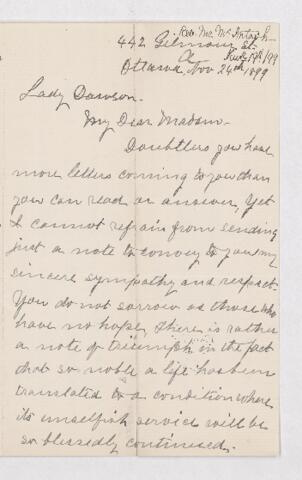 Rev. Mr. McIntosh
442 Gilmour St.
A
Ottawa, Nov 24th 1899
Lady Dawson.
My Dear Madam-
Doubtless you have
more letters coming to you than
you can read or answer, Yet
I cannot refrain from sending
just a note to convey to you my
sincere sympathy and respect.
You do not sorrow as those who
have no hope, there is rather
a note of triumph in the fact
that so noble a life has been
translated to a condition where
its unselfish service will be
so blessedly continued.